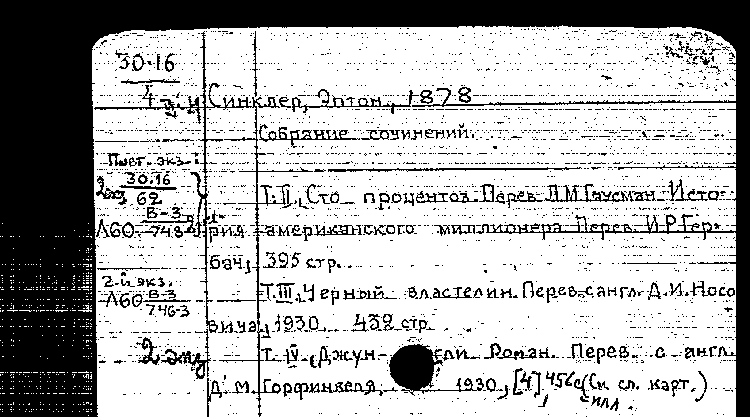 30.16
4
Синклер, Эптон, 1878
Собрание сочинений.
экз.:
30.16
62
Т. II, Сто процентов. Перев. Л.М. Гаусман. Исто-
Л60 В-3
рия американского миллионера. Перев. И.Р. Гер-
бач, 395 стр.
2-й экз.
Л60 В-3
746-3
Т. III, Черный властелин. Перев. с англ. Д.И. Носо
вича, 1930. 432 стр.
2 экз
Т. IV. Джун- гли. Роман. Перев. с англ.
Д. М. Горфинкеля, 1930, [4], 456с (см. сл. карт.)
с илл.